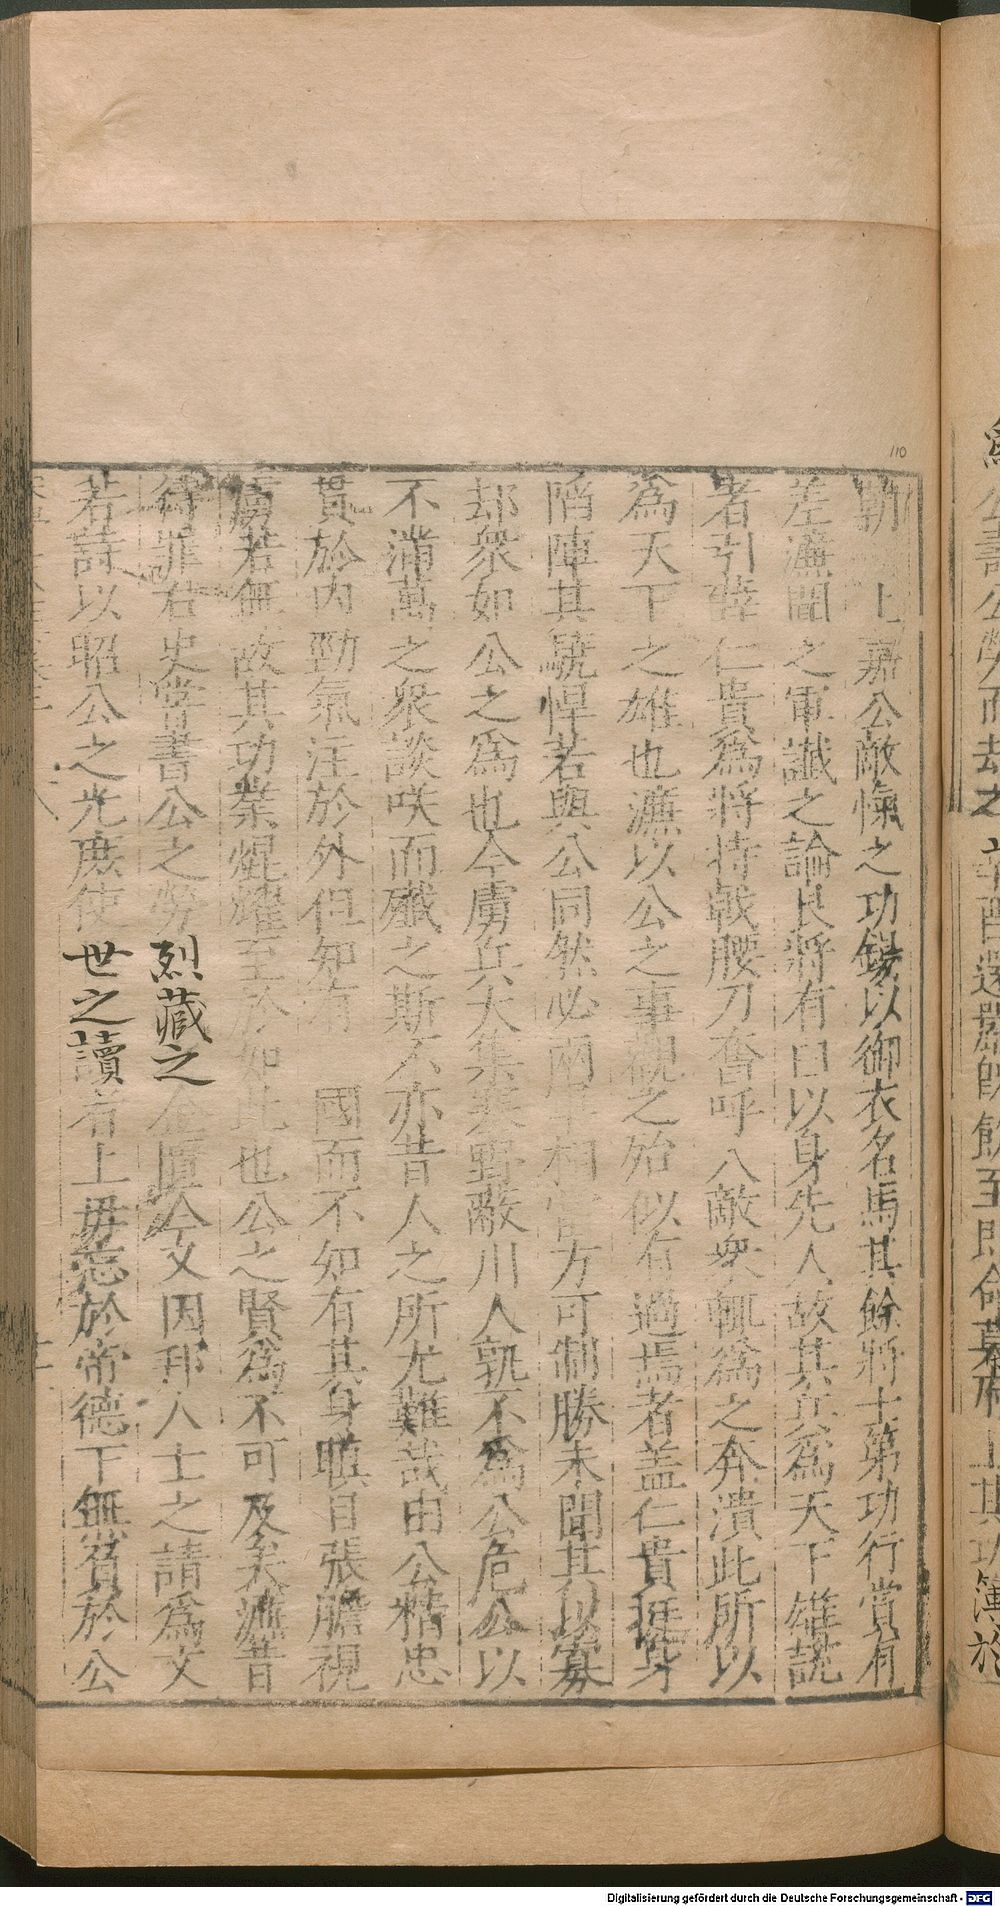 上嘉公敵愾之功錫以御衣名馬其餘將士第功行賞有
差濂聞之軍讖之論良將有曰以身先人故其兵為天下雄說
者引薛仁貴為將持戟腰刀奮呼入敵衆輒為之奔潰此所以
為天下之雄也濂以公之事觀之殆似有過焉者盖仁貴挺身
陷陣其驍悍若與公同然必兩軍相當方可制勝未聞其以寡
却衆如公之為也今虜兵大集塞野蔽川人孰不為公危公以
不滿萬之衆談咲而殱之斯不亦昔人之所尤難哉由公精忠
貫於內勁氣注於外但知有 國而不知有其身瞋目張膽視
虜若無故其功業焜燿至於如此也公之賢為不可及矣濂昔
待罪右史嘗書公之勞烈藏之金匱今又因邦人士之請為文
若詩以昭公之光庶使世之讀者上毋忘於帝德下無負於公
110
公壽公勞而去之
飲至即命幕府上其功簿於
Digitalisierung gefördert durch die Deutsche Forschungsgemeinschaft - DFG